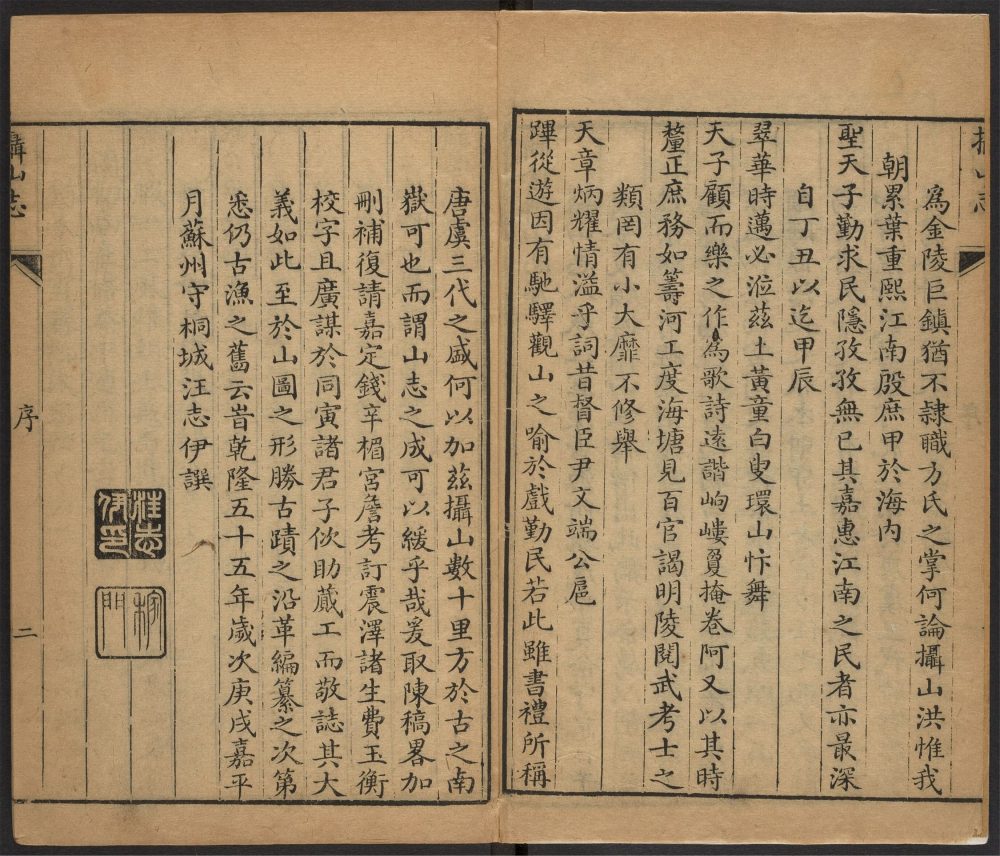 為金陵巨鎮猶不隸職方氏之掌何論攝山洪惟我
朝累葉重熙江南殷庶甲於海內
聖天子勤求民隱孜孜無已其嘉惠江南之民者亦最深
自丁丑以迄甲辰
翠華時邁必涖茲土黃童白叟環山忭舞
天子顧而樂之作為歌詩遠諧岣嶁夐掩卷阿又以其時
釐正庶務如籌河工度海塘見百官謁明陵閱武考士之
類罔有小大靡不修舉
天章炳耀情溢乎詞昔督臣尹文端公扈
蹕從遊因有馳驛觀山之喻於戲勤民若此雖書禮所稱
唐虞三代之盛何以加茲攝山數十里方於古之南
嶽可也而謂山志之成可以緩乎哉爰取陳稿畧加
刪補復請嘉定錢辛楣宮詹考訂震澤諸生費玉衡
校字且廣謀於同寅諸君子佽助蕆工而敬誌其大
義如此至於山圖之形勝古蹟之沿革編纂之次第
悉仍古漁之舊云旹乾隆五十五年歲次庚戌嘉平
月蘇州守桐城汪志伊譔
汪志
伊印
稼
門
攝山志
序
二